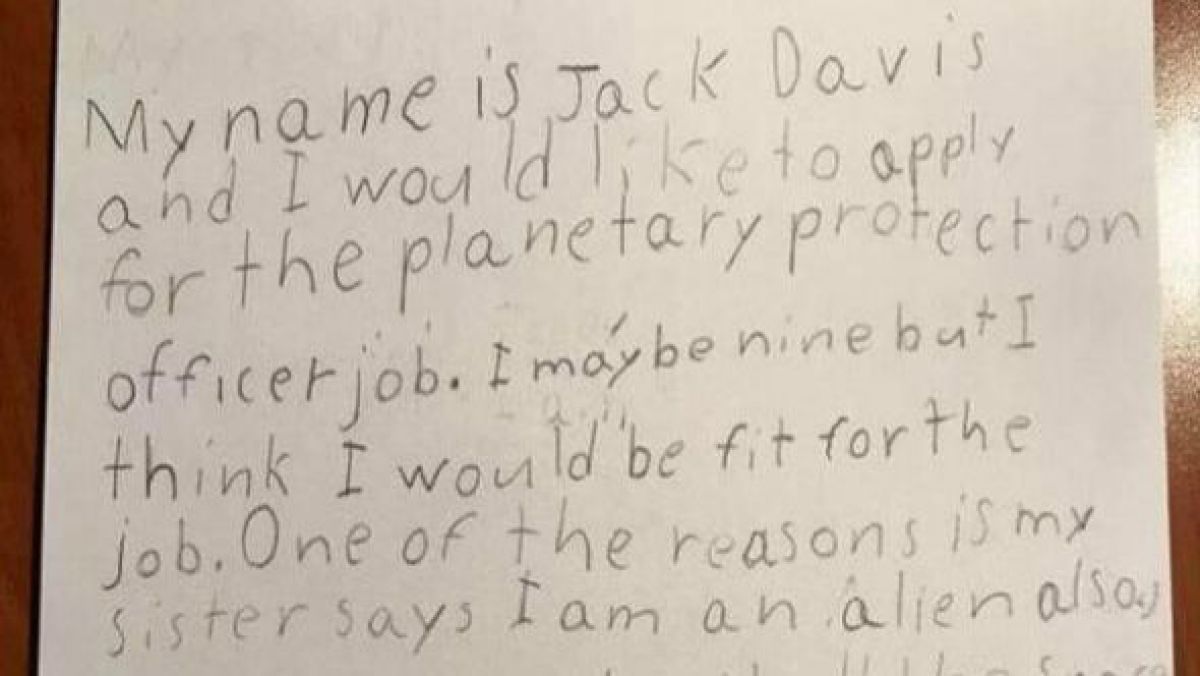 My name is Jack Davis
and I would like to apply
for the planetary protection
officer job. I may be nine but I
think I would be fit for the
job. One of the reasons is my
sister says I am an alien also,